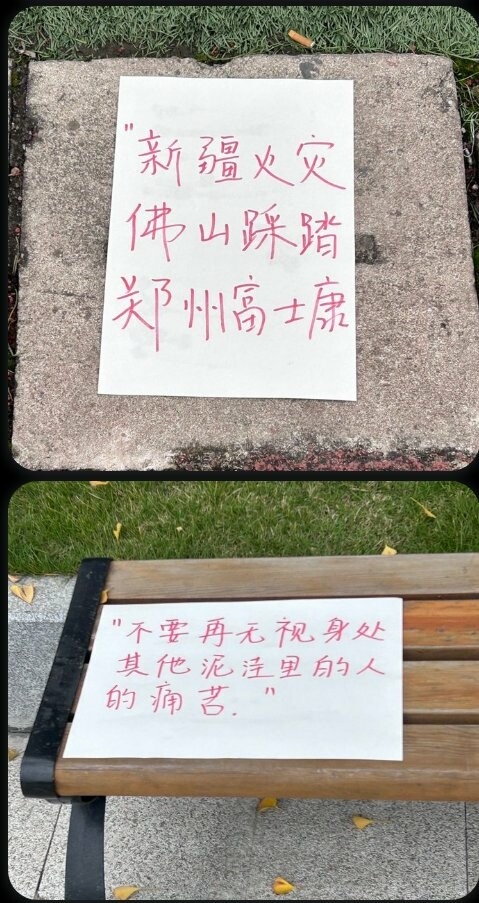 "新疆火灾
佛山踩踏
郑州富士康
"不要再无视身处
其他泥洼里的人
的痛苦."